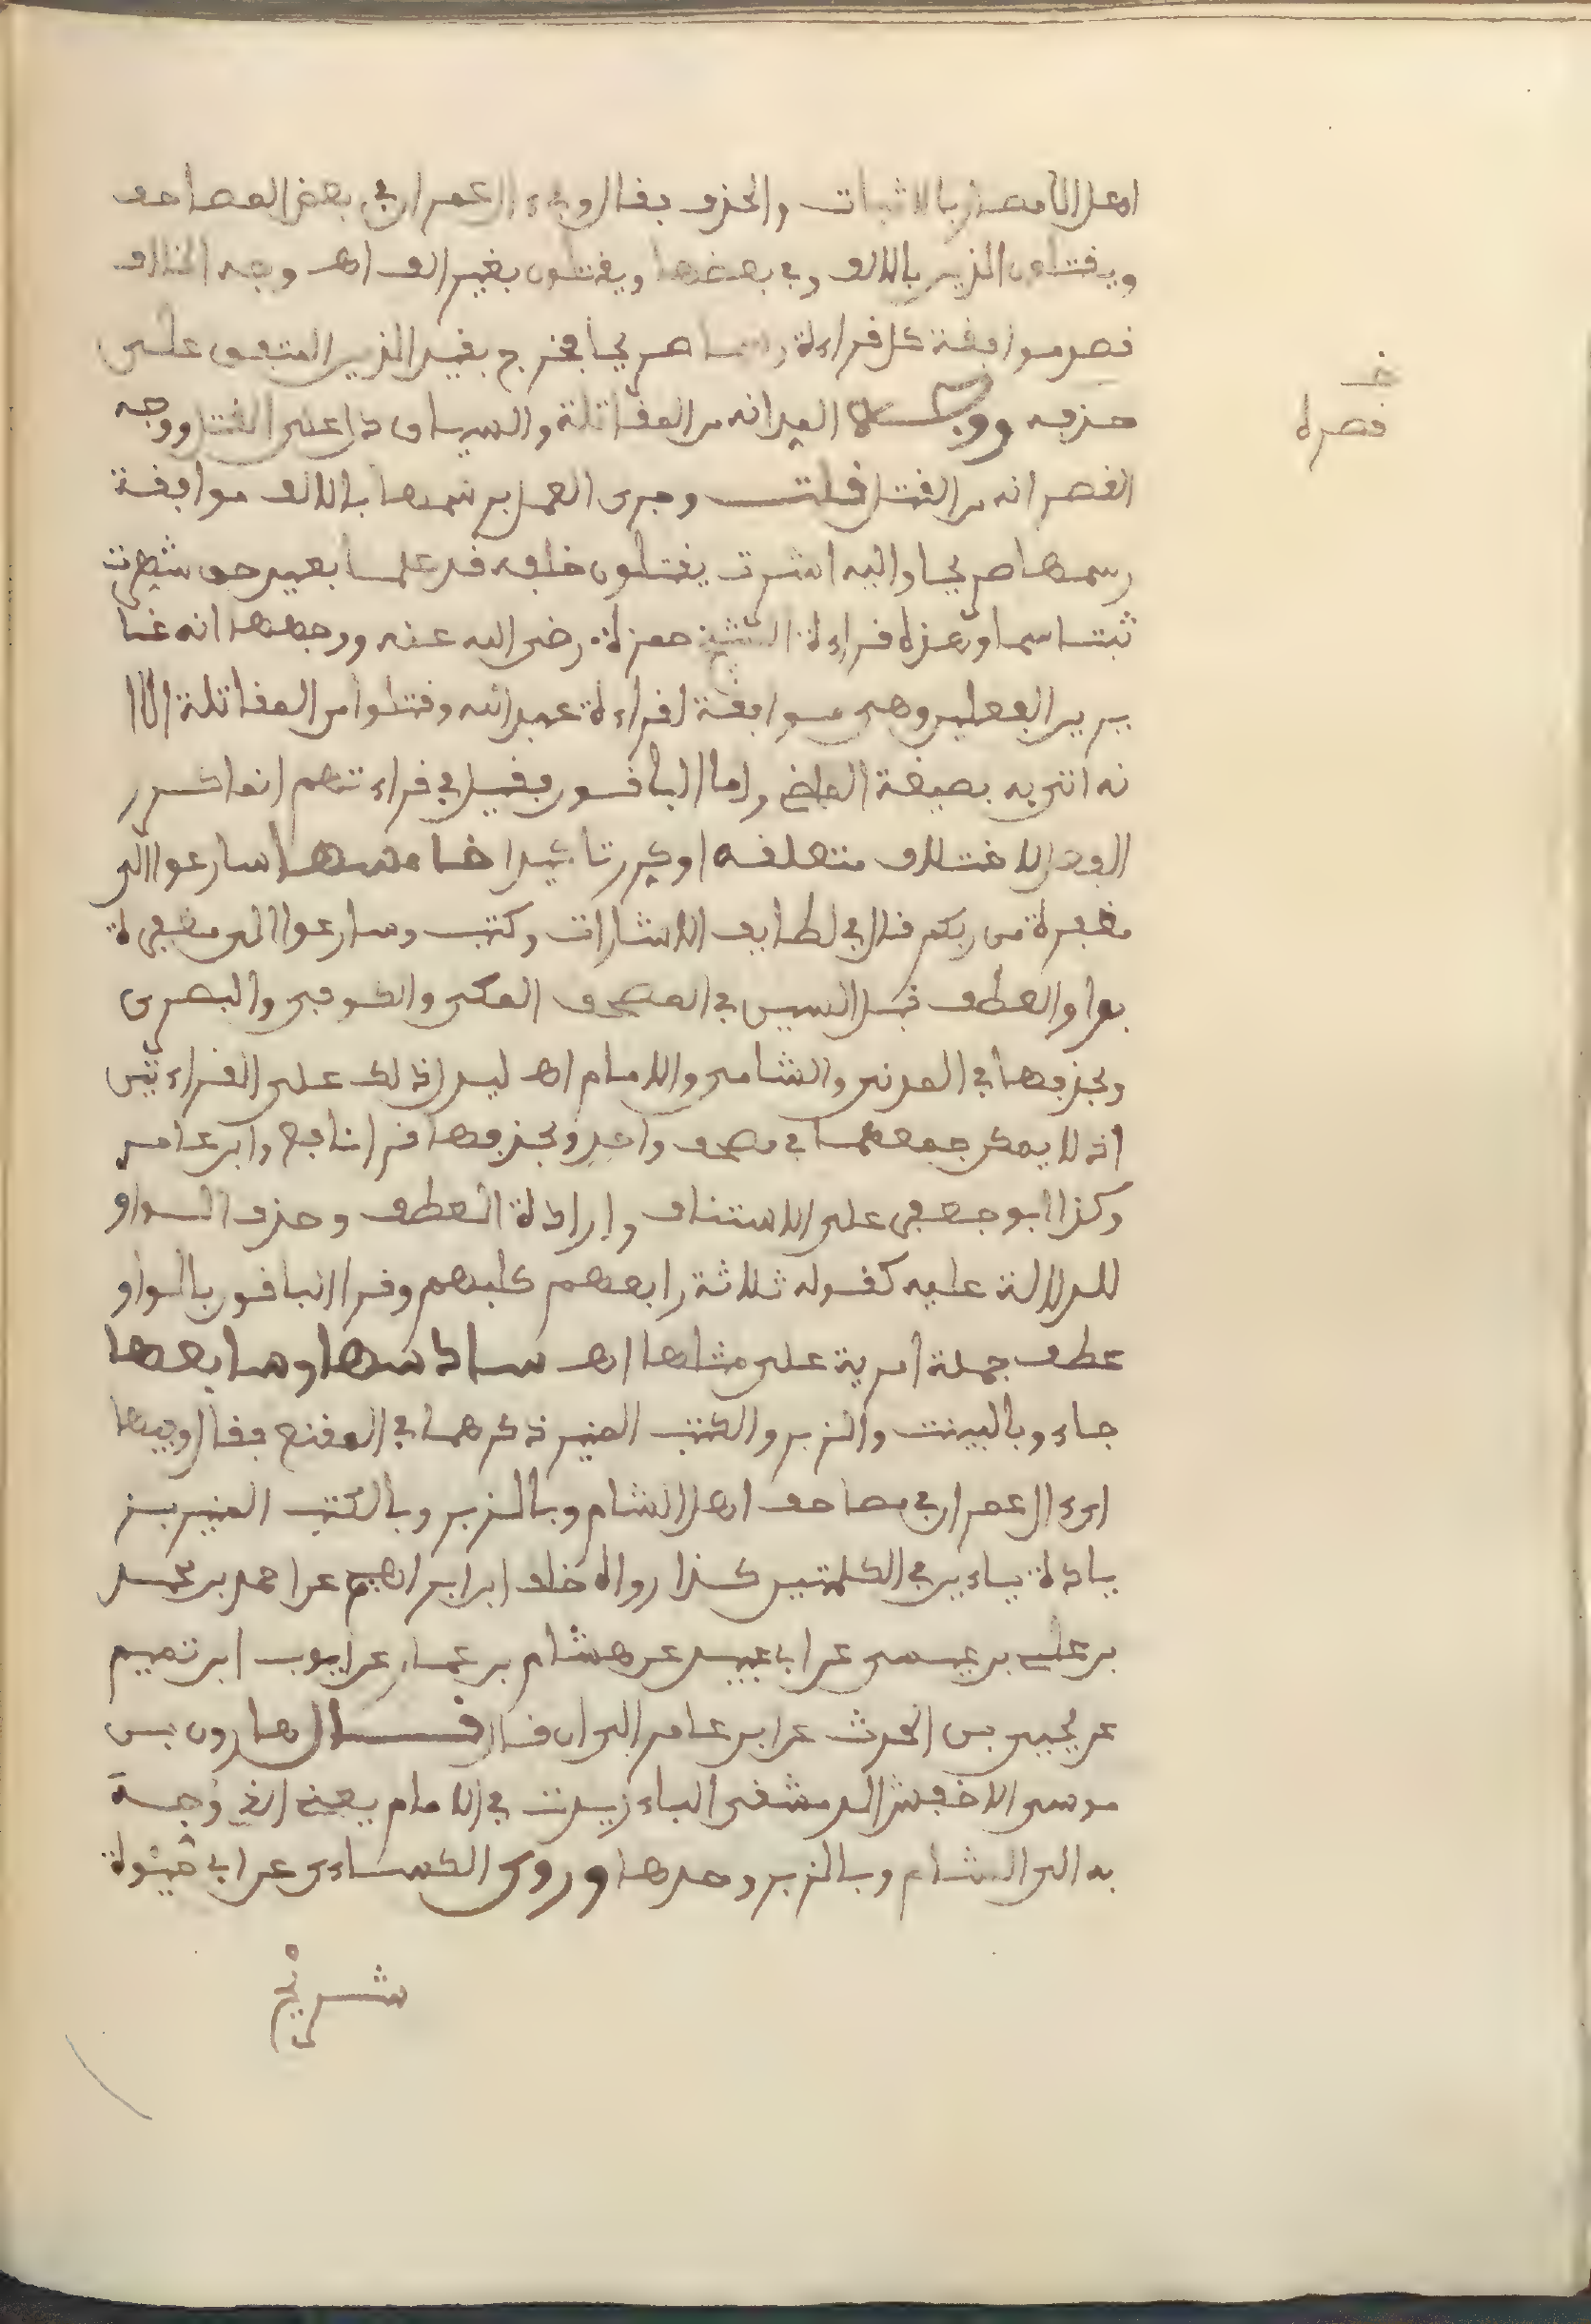 اهل الامصار بالاثبات والحذف فقال وفي ءال عمران في بعض المصاحف
ويقتلون الذين بالالف وفي بعضها ويقتلون بغير الف اهـ وجه الخلاف
قصد موافقة كل قراءة رسما صريحا فخرج بقيد الذين المتفق على
حذفه ووجه المد انه من المقاتلة والسياق دل على القتل ووجه
القصر انه من القتل قلت وجرى العمل برسمها بالالف موافقة
رسمها صريحا واليه اشرت يقتلون خلفه قد علما بعيد حق شهرت
ثبتا سما وهذه قراءة الشيخ حمزة رضي الله عنه ووجهها انه غا
ير بين الفعلين وهي موافقة لقراءة عبد الله وقتلوا من المقاتلة الا ا
نه اتى به بصيغة الماضي واما الباقون فقيل في قراءتهم انما كرر
الفعل لاختلاف متعلقه او كرر تاكيدا خامسها سارعوا الى
مغفرة من ربكم قال في لطايف الاشارات وكتب وسارعوا الى مغفرة
بواو العطف قبل السين في المصحف المكي والكوفي والبصرى
وبحذفها في المدني والشامي والامام اهـ ليدل ذلك على القراءتين
اذ لا يمكن جمعهما في مصحف واحد وبحذفها قرا نافع وابن عامر
وكذا ابو جعفر على الاستئناف وارادة العطف وحذف الواو
للدلالة عليه كقوله ثلاثة رابعهم كلبهم وقرا الباقون بالواو
عطف جملة امرية على مثلها اهـ سادسها وسابعها
جاءو بالبينت والزبر والكتب المنير ذكرهما في المقنع فقال وفيها
اى ءال عمران في مصاحف اهل الشام وبالزبر وبالكتب المنير بز
يادة باءين في الكلمتين كذا رواه خلف ابن ابراهيم عن احمد بن محمد
بن علي بن عيسى عن ابي عبيد عن هشام بن عمار عن ايوب ابن تميم
عن يحيى بن الحرث عن ابن عامر الى ان قال قال هارون بن
موسى الاخفش الدمشقي الباء زيدت في الامام يعني الذ وجه
به الى الشام وبالزبر وحدها وروى الكساءى عن ابي حيوة
شريح
خـ
قصره